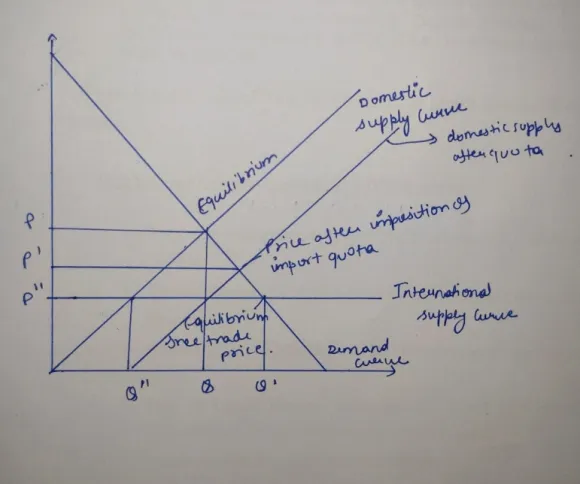 Domestic
supply curve
domestic supply
after quota
Equilibrium
P
Price after imposition of
import quota
P'
P"
International
supply curve
Equilibrium
free trade
price.
Demand
curve
Q"
Q
Q'